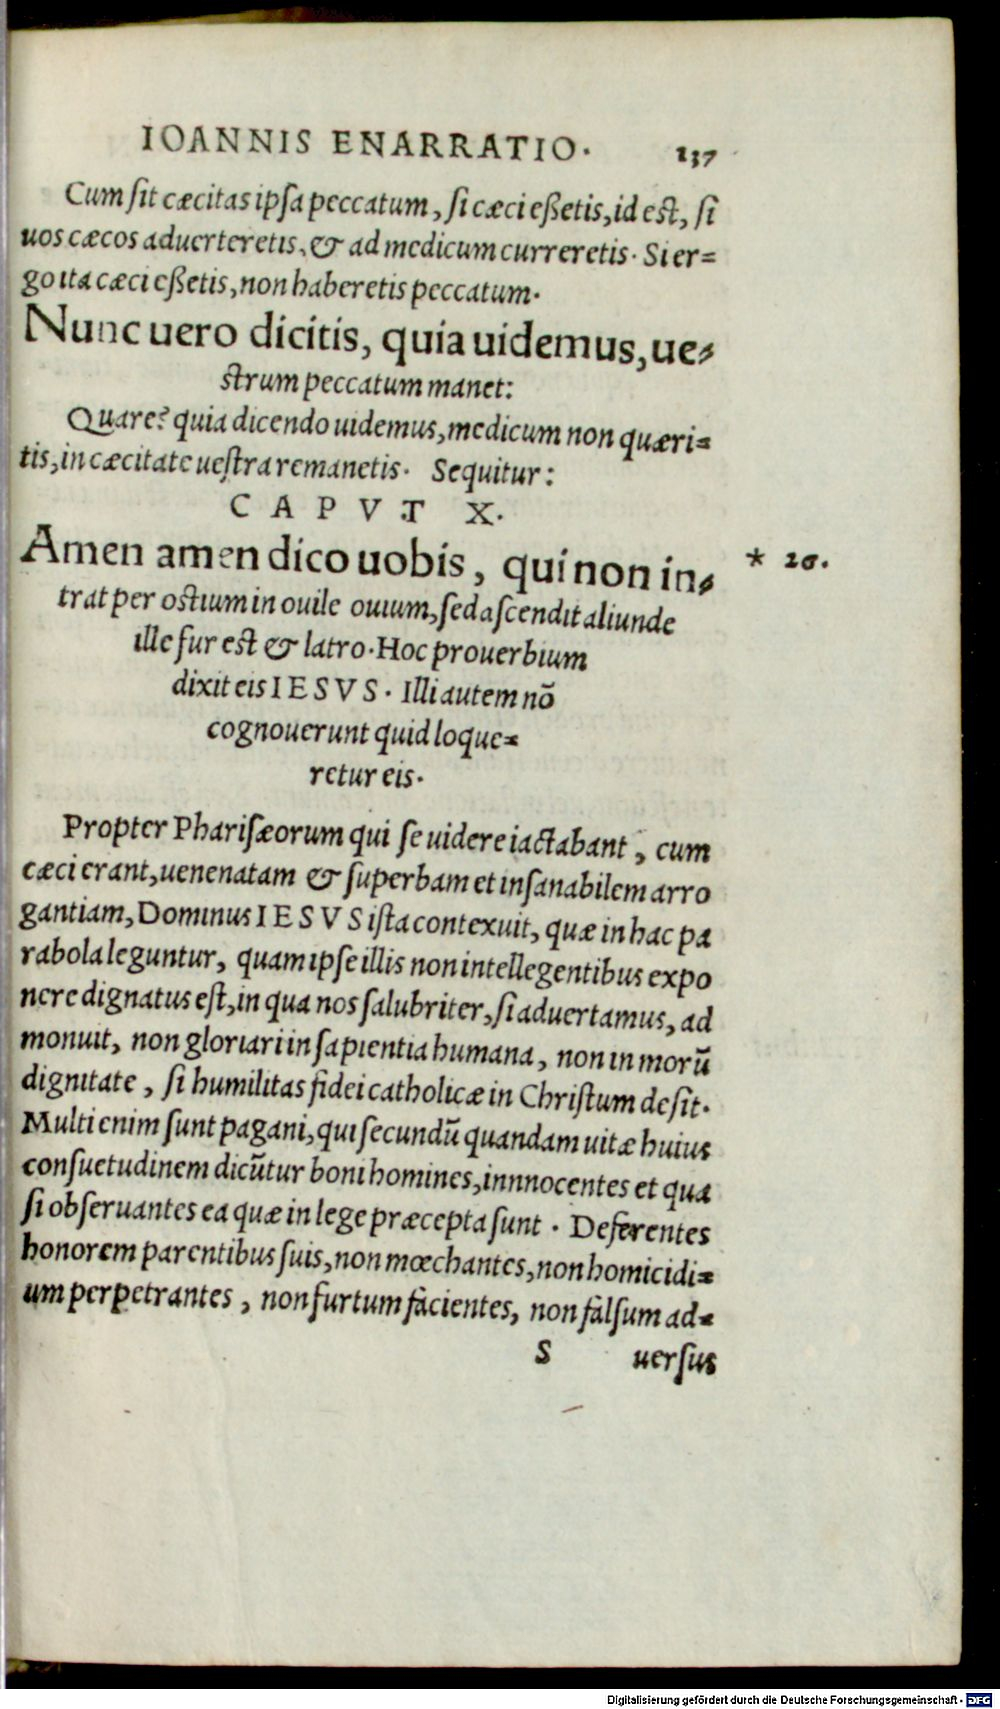 IOANNIS ENARRATIO. 137
Cum ſit cæcitas ipſa peccatum, ſi cæci eßetis, id est, ſi
uos cæcos aduerteretis, & ad medicum curreretis. Si er=
go ita cæci eßetis, non haberetis peccatum.
Nunc uero dicitis, quia uidemus, ue=
strum peccatum manet:
Quare? quia dicendo uidemus, medicum non quæri=
tis, in cæcitate ueſtra remanetis. Sequitur:
CAPVT X.
Amen amen dico uobis, qui non in= * 26.
trat per ostium in ouile ouium, ſed aſcendit aliunde
ille fur est & latro. Hoc prouerbium
dixit eis IESVS. Illi autem nõ
cognouerunt quid loque=
retur eis.
Propter Phariſæorum qui ſe uidere iactabant, cum
cæci erant, uenenatam & ſuperbam et inſanabilem arro
gantiam, Dominus IESVS iſta contexuit, quæ in hac pa
rabola leguntur, quam ipſe illis non intellegentibus expo
nere dignatus eſt, in qua nos ſalubriter, ſi aduertamus, ad
monuit, non gloriari in ſapientia humana, non in morũ
dignitate, ſi humilitas fidei catholicæ in Chriſtum deſit.
Multi enim ſunt pagani, qui ſecundũ quandam uitæ huius
conſuetudinem dicũtur boni homines, innnocentes et qua
ſi obſeruantes ea quæ in lege præcepta ſunt. Deferentes
honorem parentibus ſuis, non mœchantes, non homicidi=
um perpetrantes, non furtum facientes, non falſum ad=
S uerſus
Digitalisierung gefördert durch die Deutsche Forschungsgemeinschaft - DFG